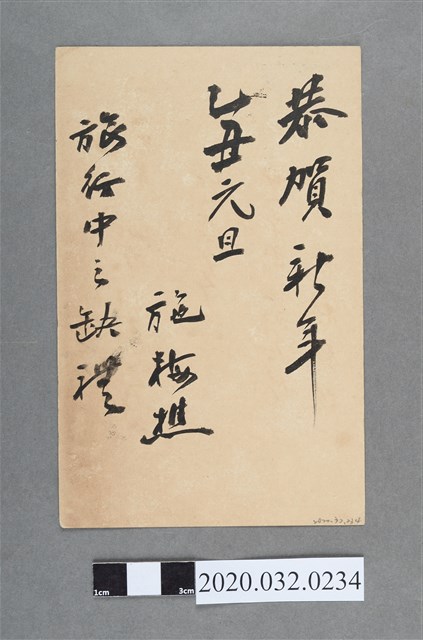 恭賀新年
乙丑元旦
施梅樵
旅行中之缺禮
1cm 3cm
2020.032.0234